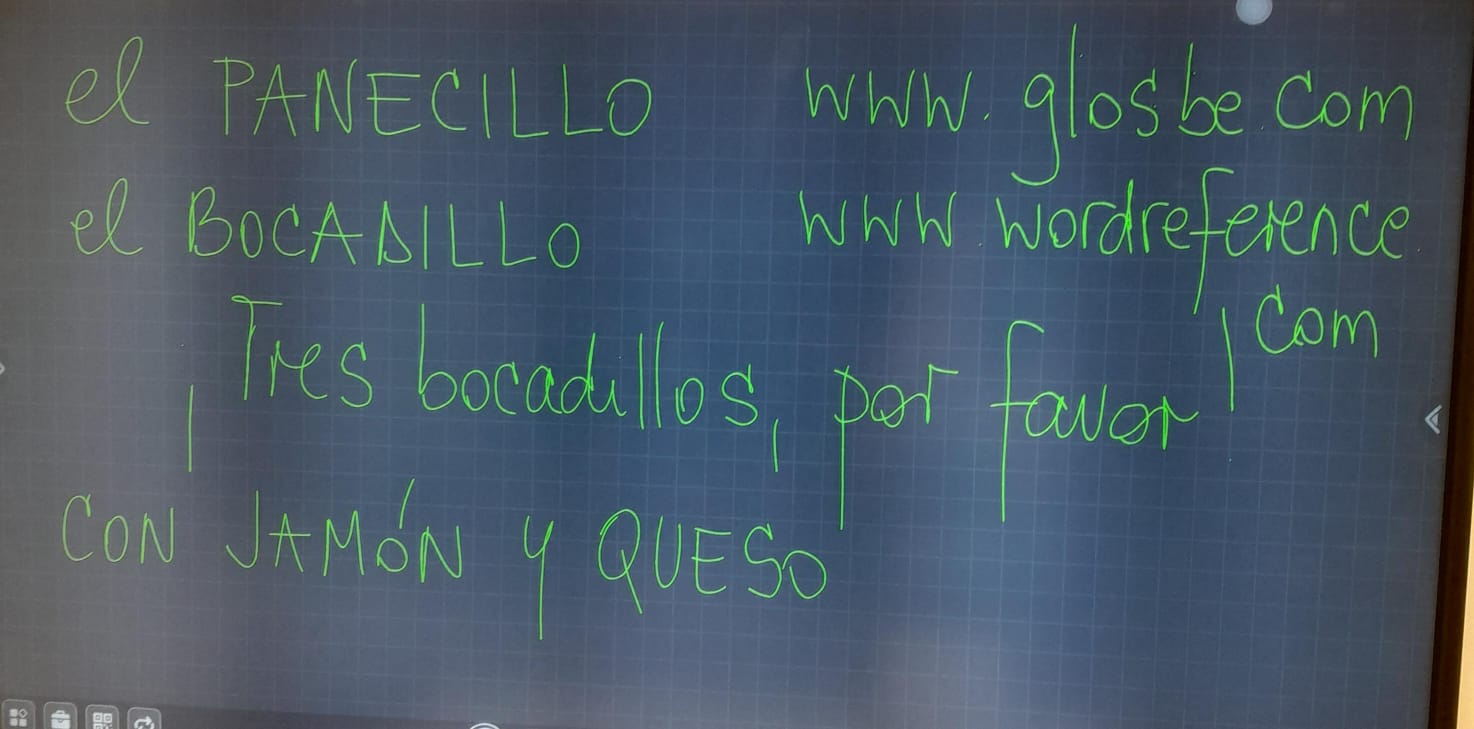 el PANECILLO
www.glosbe.com
el BOCADILLO
www.wordreference.com
¡Tres bocadillos, por favor!
CON JAMÓN y QUESO